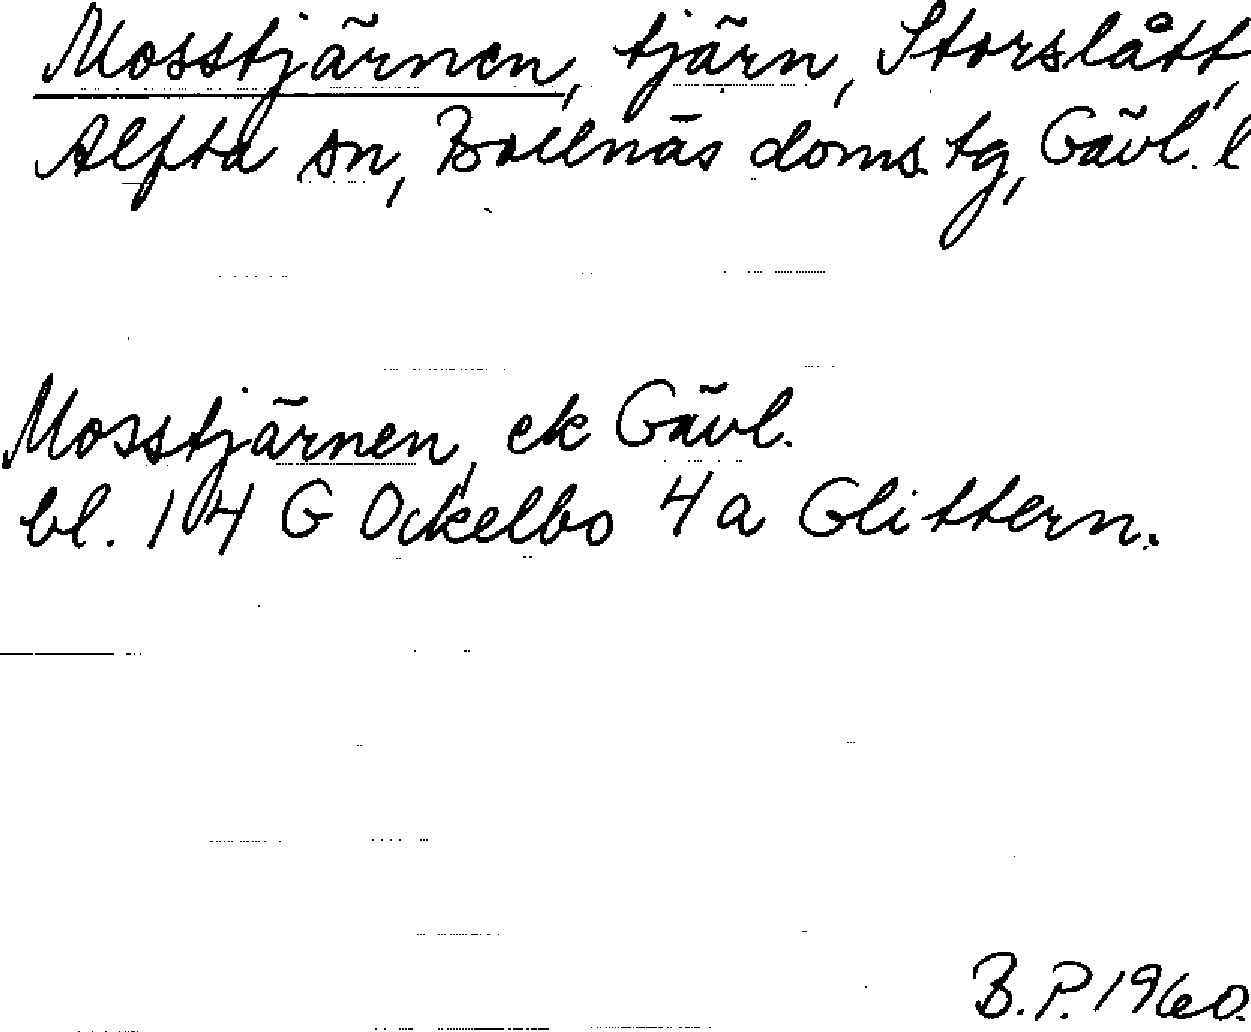 Mosstjärnen, tjärn, Storslått,
Alfta sn, Bollnäs doms. tg, Gävl. l
Mosstjärnen, ek Gävl.
bl. 14 G Ockelbo 4a Glittern.
B.P. 1960.